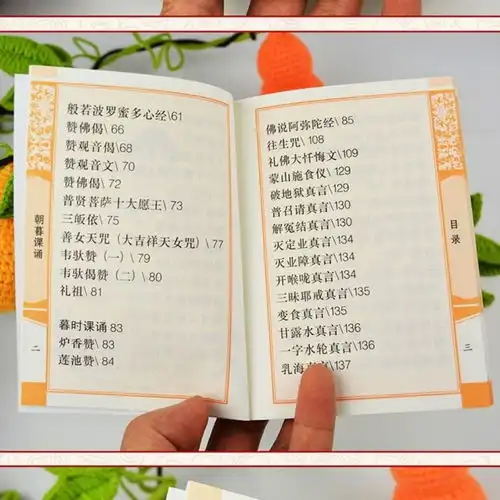 朝暮课诵
二
般若波罗蜜多心经\61
赞佛偈\ 66
赞观音偈\68
赞观音文\ 70
赞佛偈\ 72
普贤菩萨十大愿王\ 73
三皈依\ 75
善女天咒（大吉祥天女咒）\ 77
韦驮赞（一）\ 79
韦驮偈赞（二）\ 80
礼祖\ 81
暮时课诵 83
炉香赞\ 83
莲池赞\ 84
佛说阿弥陀经\ 85
往生咒\ 108
礼佛大忏悔文\ 109
蒙山施食仪\ 129
破地狱真言\129
普召请真言\130
解冤结真言\130
灭定业真言\134
灭业障真言\134
开喉咙真言\134
三昧耶戒真言\135
变食真言\135
甘露水真言\136
一字水轮真言\136
乳海真言\137
目录
三